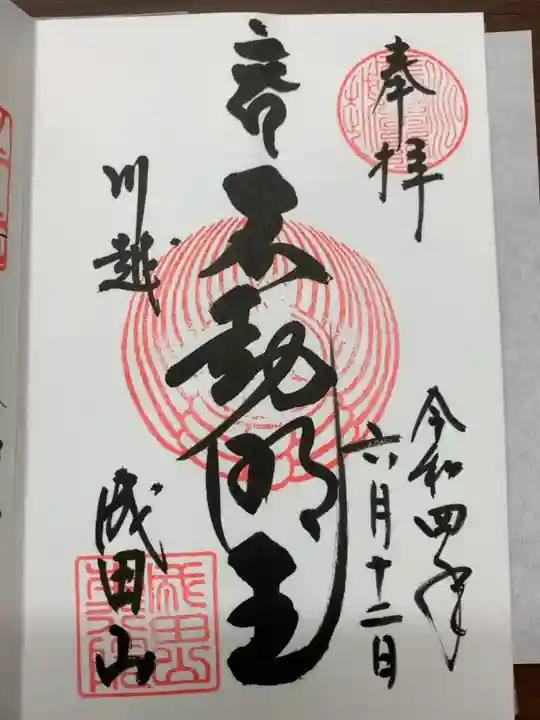 奉拝
令和四年
六月十二日
不動明王
川越
成田山